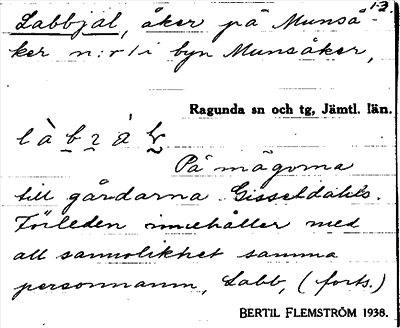 13.
Labbjäl, åker på Munså-
ker n:r 1 i byn Munsåker,
Ragunda sn och tg, Jämtl. län.
På mägorna
till gårdarna Gisseldahls.
Förleden innehåller med
all sannolikhet samma
personnamn, Labb, (forts.)
BERTIL FLEMSTRÖM 1938.